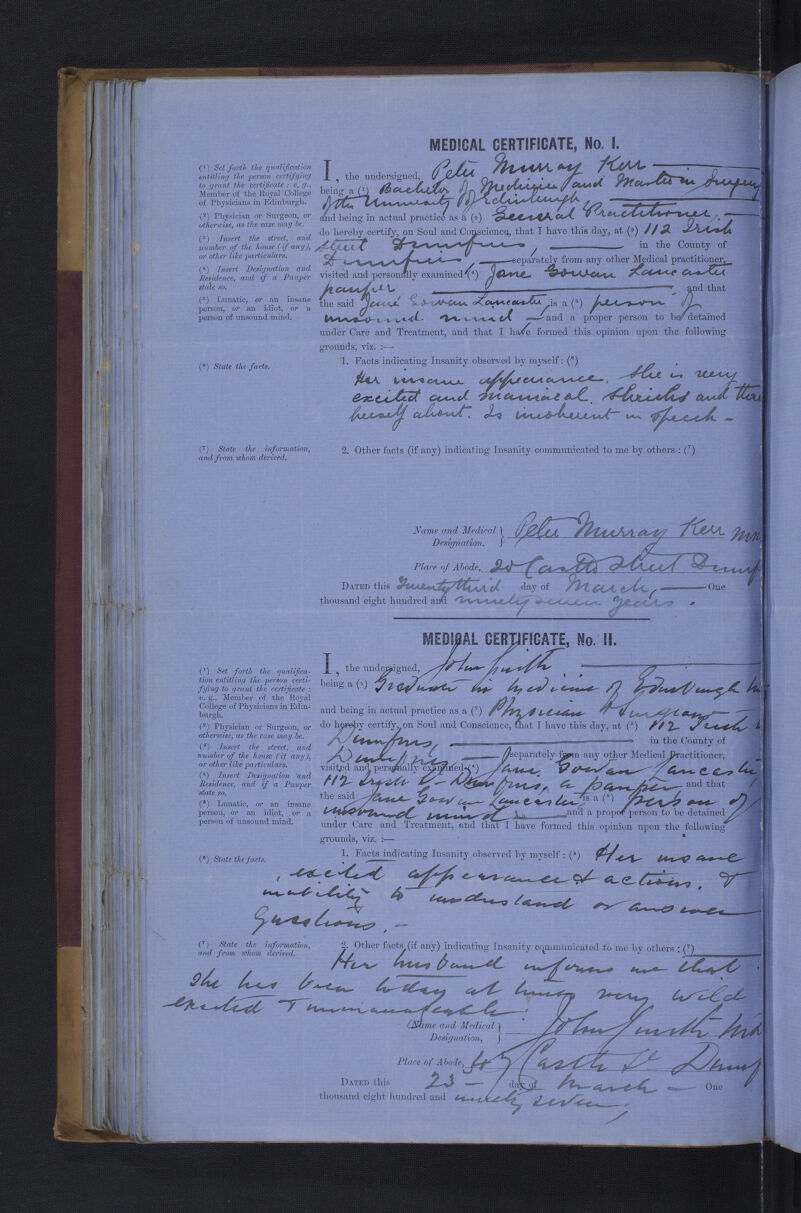 MEDICAL CERTIFICATE, No. I.
(¹) Set forth the qualification
entitling the person certifying
to grant the certificate : e. g.,
Member of the Royal College
of Physicians in Edinburgh.
(²) Physician or Surgeon, or
otherwise, as the case may be.
(³) Insert the street, and
number of the house (if any),
or other like particulars.
(⁴) Insert Designation and
Residence, and if a Pauper
state so.
(⁵) Lunatic, or an insane
person, or an idiot, or a
person of unsound mind.
I, the undersigned, Peter Murray Kerr
being a (¹) Bachelor of Medicine and Master in Surgery
of the University of Edinburgh,
and being in actual practice as a (²) General Practitioner,
do hereby certify, on Soul and Conscience, that I have this day, at (³) 112 Irish
Street Dumfries, in the County of
Dumfries, separately from any other Medical practitioner,
visited and personally examined (⁴) Jane Gowan Lancaster
pauper and that
the said Jane Gowan Lancaster is a (⁵) person of
unsound mind and a proper person to be detained
under Care and Treatment, and that I have formed this opinion upon the following
grounds, viz. :—
(⁶) State the facts.
1. Facts indicating Insanity observed by myself : (⁶)
Her insane appearance. She is very
excited and maniacal. Shrieks and
herself about. Is incoherent in speech -
(⁷) State the information,
and from whom derived.
2. Other facts (if any) indicating Insanity communicated to me by others : (⁷)
Name and Medical Designation. } Peter Murray Kerr
Place of Abode, 20 Castle Street
DATED this Twenty third day of March, One
thousand eight hundred and ninety seven years.
MEDICAL CERTIFICATE, No. II.
(¹) Set forth the qualifica-
tion entitling the person certi-
fying to grant the certificate :
e. g., Member of the Royal
College of Physicians in Edin-
burgh.
(²) Physician or Surgeon, or
otherwise, as the case may be.
(³) Insert the street, and
number of the house (if any),
or other like particulars.
(⁴) Insert Designation and
Residence, and if a Pauper
state so.
(⁵) Lunatic, or an insane
person, or an idiot, or a
person of unsound mind.
I, the undersigned, John Smith
being a (¹) Graduate in Medicine of Edinburgh
and being in actual practice as a (²) Physician & Surgeon
do hereby certify, on Soul and Conscience, that I have this day, at (³) 112 Irish
Dumfries, in the County of
Dumfries separately from any other Medical Practitioner,
visited and personally examined (⁴) Jane Gowan Lancaster
112 Irish St Dumfries, a pauper and that
the said Jane Gowan Lancaster is a (⁵) person of
unsound mind and a proper person to be detained
under Care and Treatment, and that I have formed this opinion upon the following
grounds, viz. :—
(⁶) State the facts.
1. Facts indicating Insanity observed by myself : (⁶) Her insane
, excited appearance & actions. &
inability to understand or answer
Questions. -
(⁷) State the information,
and from whom derived.
2. Other facts (if any) indicating Insanity communicated to me by others : (⁷)
Her husband informs me that
she has been today at times very wild
excited & unmanageable.
Name and Medical Designation, } John Smith
Place of Abode, Castle St
DATED this 23 - day of March - One
thousand eight hundred and ninety seven,